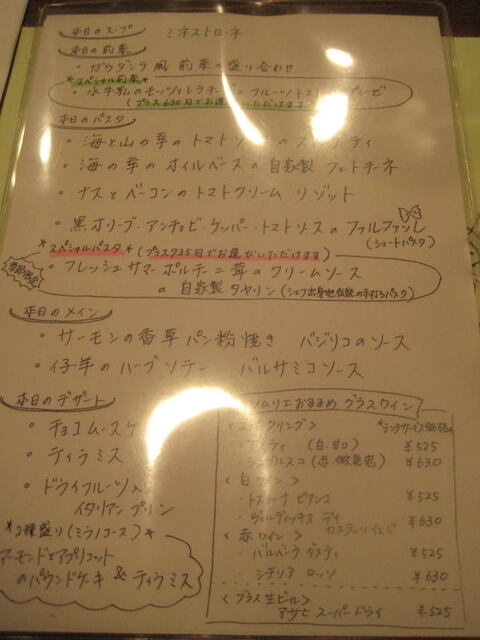 本日のスープ ミネストローネ
本日の前菜
・ガウダンテ風 前菜の盛り合わせ
*スペシャル前菜*
・水牛乳のモッツァレラチーズと フルーツトマト
(プラス630円でお選びいただけます)
本日のパスタ
・海と山の幸のトマトソースのスパゲティ
・海の幸のオイルベースの自家製フェトチーネ
・ナスとベーコンのトマトクリーム リゾット
・黒オリーブ・アンチョビ・ケッパー・トマトソースのファルファッレ
(ショートパスタ)
*スペシャルパスタ* (プラス735円でお選びいただけます)
季節限定
・フレッシュサマーポルチーニ茸のクリームソース
の自家製タヤリン(シェフ出身地伝統の手打ちパスタ)
本日のメイン
・サーモンの香草パン粉焼き バジリコのソース
・仔羊のハーブソテー バルサミコソース
本日のデザート
・チョコムースケーキ
・ティラミス
・ドライフルーツ入り
イタリアンプリン
*2種盛り(ミラノコース)*
アーモンドとアプリコット
のパウンドケーキ & ティラミス
ソムリエおすすめ グラスワイン
*ランチサービス価格*
<スパークリング>
・アスティ (白.甘口) ¥525
(赤.微発泡) ¥630
<白ワイン>
・トスカーナ ビアンコ ¥525
・ヴェルディッキオ デイ カステッリ イエジ ¥630
<赤ワイン>
・バルベーラ ダスティ ¥525
・シチリア ロッソ ¥630
<グラス生ビール>
アサヒ スーパードライ ¥525